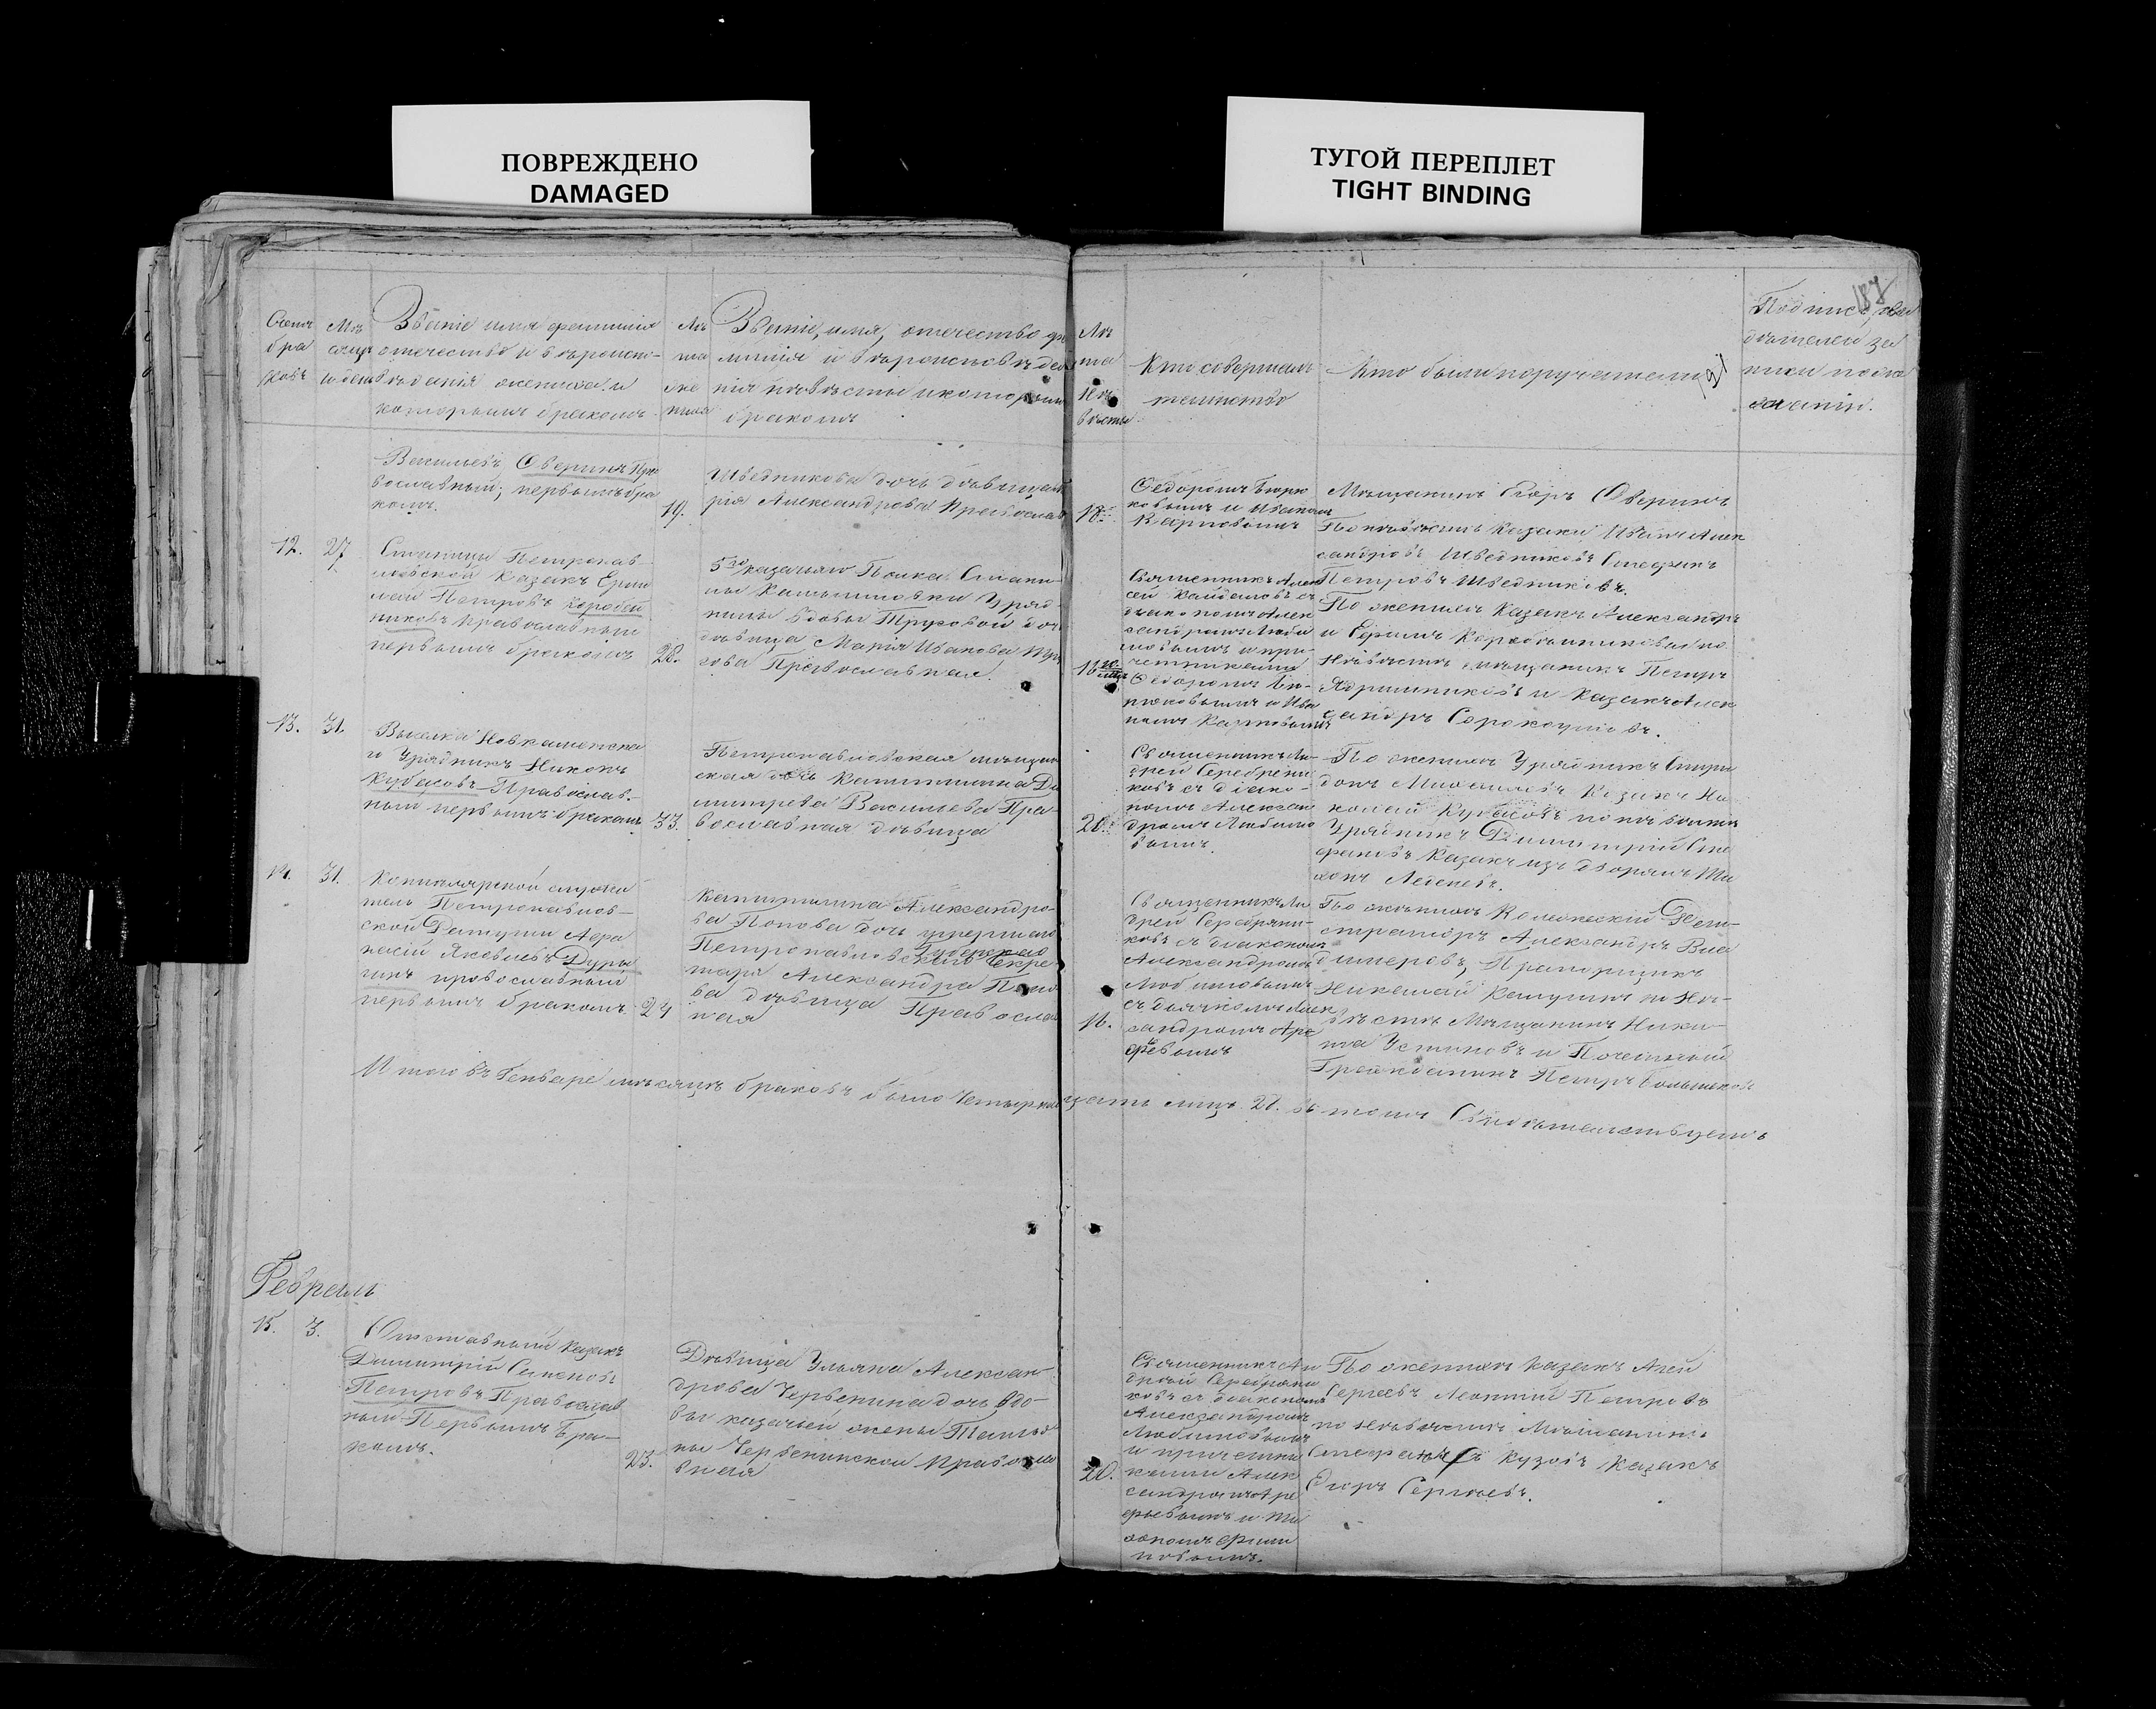 ПОВРЕЖДЕНО
DAMAGED
ТУГОЙ ПЕРЕПЛЕТ
TIGHT BINDING
187
Счетъ
бра
ковъ
Мѣ
сяцъ
и день
Званіе имя фамилія
отечество и вѣроиспо-
вѣданія жениха и
которымъ бракомъ
Лѣ
та
же
ниха
Званіе, имя, отечество фа
милія и вѣроисповѣда
нія невѣсты и которымъ
бракомъ
Лѣ
та
не
вѣсты
Кто совершалъ
таинство
Кто были поручатели
Подпись сви
дѣтелей за
писи по же
ланію.
Васильевъ Оверинъ Пра
вославный; первымъ бра
комъ.
19.
Шведникова дочь дѣвица Ма
рія Александрова Православ
18.
Ѳедоромъ Бирю
ковымъ и Иваномъ
Карповымъ
Мѣщанинъ Егоръ Оверинъ
По невѣстѣ Казаки Иванъ Алек
сандровъ Шведниковъ Стефанъ
Петровъ Шведниковъ.
12.
27
Станицы Петропав-
ловской Казакъ Ермо
лай Петровъ Коробей
никовъ православный
первымъ бракомъ
28.
5го казачьяго Полка Стани-
цы Камышловки Уряд-
ницы вдовы Трусовой доч
дѣвица Марія Иванова Тру
сова Православная.
18
Священникъ Алек
сѣй с
діакономъ Алек
сандромъ Люби
мовымъ и при-
четниками
Ѳедоромъ Би-
рюковымъ и Ива
номъ Карповымъ
По женихѣ Казакъ Александръ
и Ефимъ Коробейниковы по
Невѣстѣ мѣщанинъ Петръ
Ядрышниковъ и казакъ Алек
сандръ
13.
31.
Выселка Новокаменска
го Урядникъ Никонъ
Кубасовъ Православ-
ный первымъ бракомъ
33.
Петропавловская мѣщан
ская дочь Катитолина Ди
митрева Васильева Пра-
вославная дѣвица
20.
Священникъ Ан
дрей Серебрени
ковъ с діако-
номъ Алексан
дромъ Любимо
вымъ.
По женихѣ Урядникъ Спири
донъ Михайловъ Казакъ Ни
колай Кубасовъ по невѣстѣ
Урядникъ Димитрій Сте
фановъ Казакъ изъ дворянъ Ти
хонъ Леденевъ.
14.
31.
Канцлярской служи
тель Петропавлов-
ской Датуши Афа
насій Яковлевъ Дуры
гинъ провославный
первымъ бракомъ.
24
Капитолина Александро-
ва Попова дочь умершаго
Петропавловскаго Губернскаго Секре-
таря Александра Попо
ва дѣвица Правосла
ная
16.
Священникъ Ан
дрей Серебрени-
ковъ с діакономъ
Александромъ
Любимовымъ
съ дьячкомъ Алек
сандромъ Аре
фьевымъ
По женихѣ Колежскій Реги-
страторъ Александръ Вла
димеровъ, Прапорщикъ
Николай по Не-
вѣстѣ Мѣщанинъ Ники-
та Устиновъ и Почетный
Гражданинъ Петръ Большаков
Итого въ Генваре мѣсяцѣ браковъ было Четырнадцать лицъ 28. въ томъ Свидѣтельствуемъ
Февраль
15.
3.
Отставный казакъ
Димитрій Симоновъ
Петровъ Православ
ный Первымъ Бра-
комъ.
23.
Дѣвица Ульяна Алексан-
дрова Червенина дочь вдо-
вы казачьей жены Татья
ны Червенинской Правосла
вная
20.
Священникъ Ан
дрей Серебрени
ковъ съ діакономъ
Александромъ
Любимовымъ
и причетни
ками Алек
сандромъ Аре
фьевымъ и Ти
хономъ Фили
повымъ.
По женихѣ казакъ
Сергеевъ Леонтій Петровъ
по Невѣстѣ Мѣщанинъ
Кузовъ Казакъ
Егоръ Сергѣевъ.